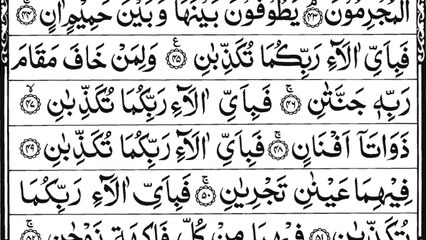 الْمُجْرِمُوْنَ ۝۴۳ یَطُوْفُوْنَ بَیْنَهَا وَ بَیْنَ حَمِیْمٍ اٰنٍ ۝۴۴
فَبِاَیِّ اٰلَآءِ رَبِّكُمَا تُكَذِّبٰنِ ۝۴۵ وَلِمَنْ خَافَ مَقَامَ
رَبِّهٖ جَنَّتٰنِ ۝۴۶ فَبِاَیِّ اٰلَآءِ رَبِّكُمَا تُكَذِّبٰنِ ۝۴۷
ذَوَاتَاۤ اَفْنَانٍ ۝۴۸ فَبِاَیِّ اٰلَآءِ رَبِّكُمَا تُكَذِّبٰنِ ۝۴۹
فِیْهِمَا عَیْنٰنِ تَجْرِیٰنِ ۝۵۰ فَبِاَیِّ اٰلَآءِ رَبِّكُمَا
تُكَذِّبٰنِ ۝۵۱ فِیْهِمَا مِنْ كُلِّ فَاكِهَةٍ زَوْجٰنِ ۝۵۲